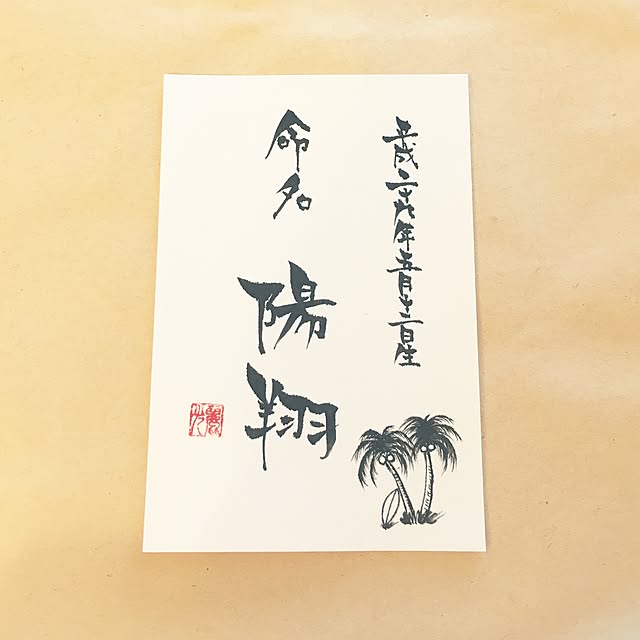 平成二十九年五月十二日生
命名
陽翔